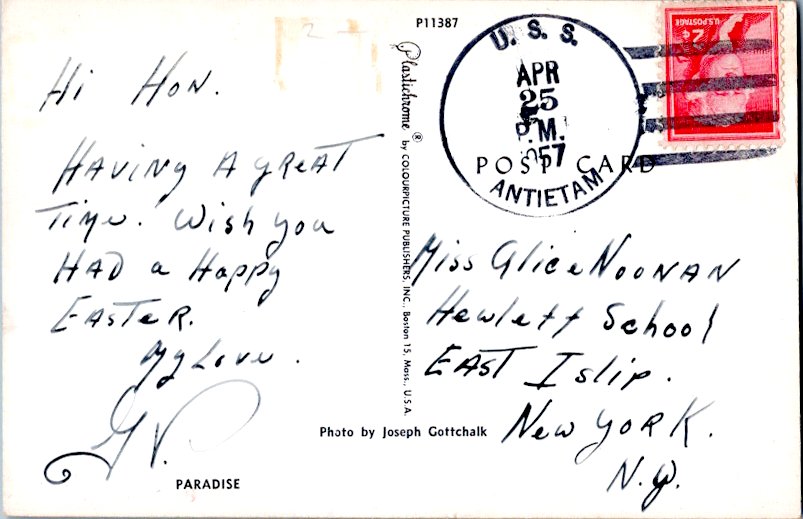 P11387
Hi Hon.
Having a great
Time. Wish you
Had a Happy
Easter.
My Love.
PARADISE
Plastichrome ® by COLOURPICTURE PUBLISHERS, INC., Boston 15, Mass., U.S.A.
Photo by Joseph Gottchalk
U.S.S.
APR
25
P.M.
1957
ANTIETAM
POST CARD
U.S. POSTAGE
2¢
Miss Alice Noonan
Hewlett School
East Islip.
New York.
N.Y.